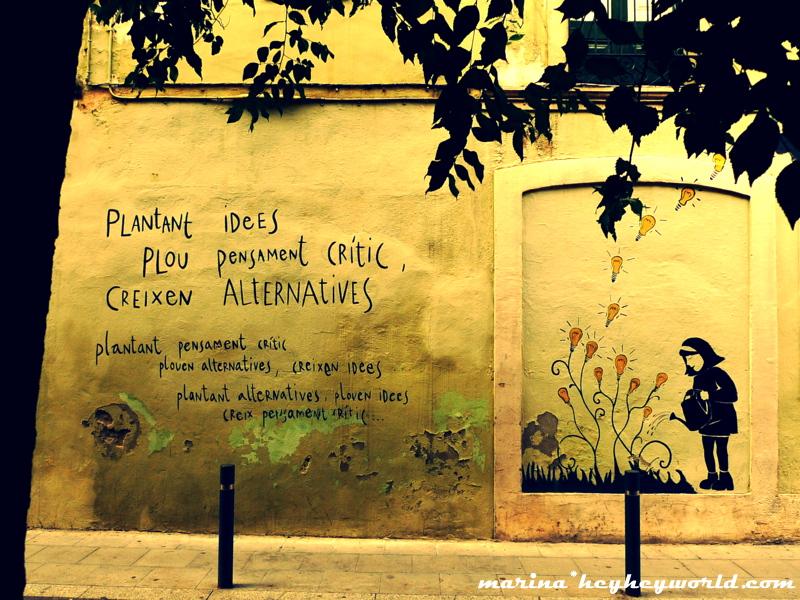 PLANTANT IDEES
PLOU PENSAMENT CRÍTIC,
CREIXEN ALTERNATIVES
plantant pensament crític
plouen alternatives, creixen idees
plantant alternatives, plouen idees
creix pensament crític...
marina*heyheyworld.com